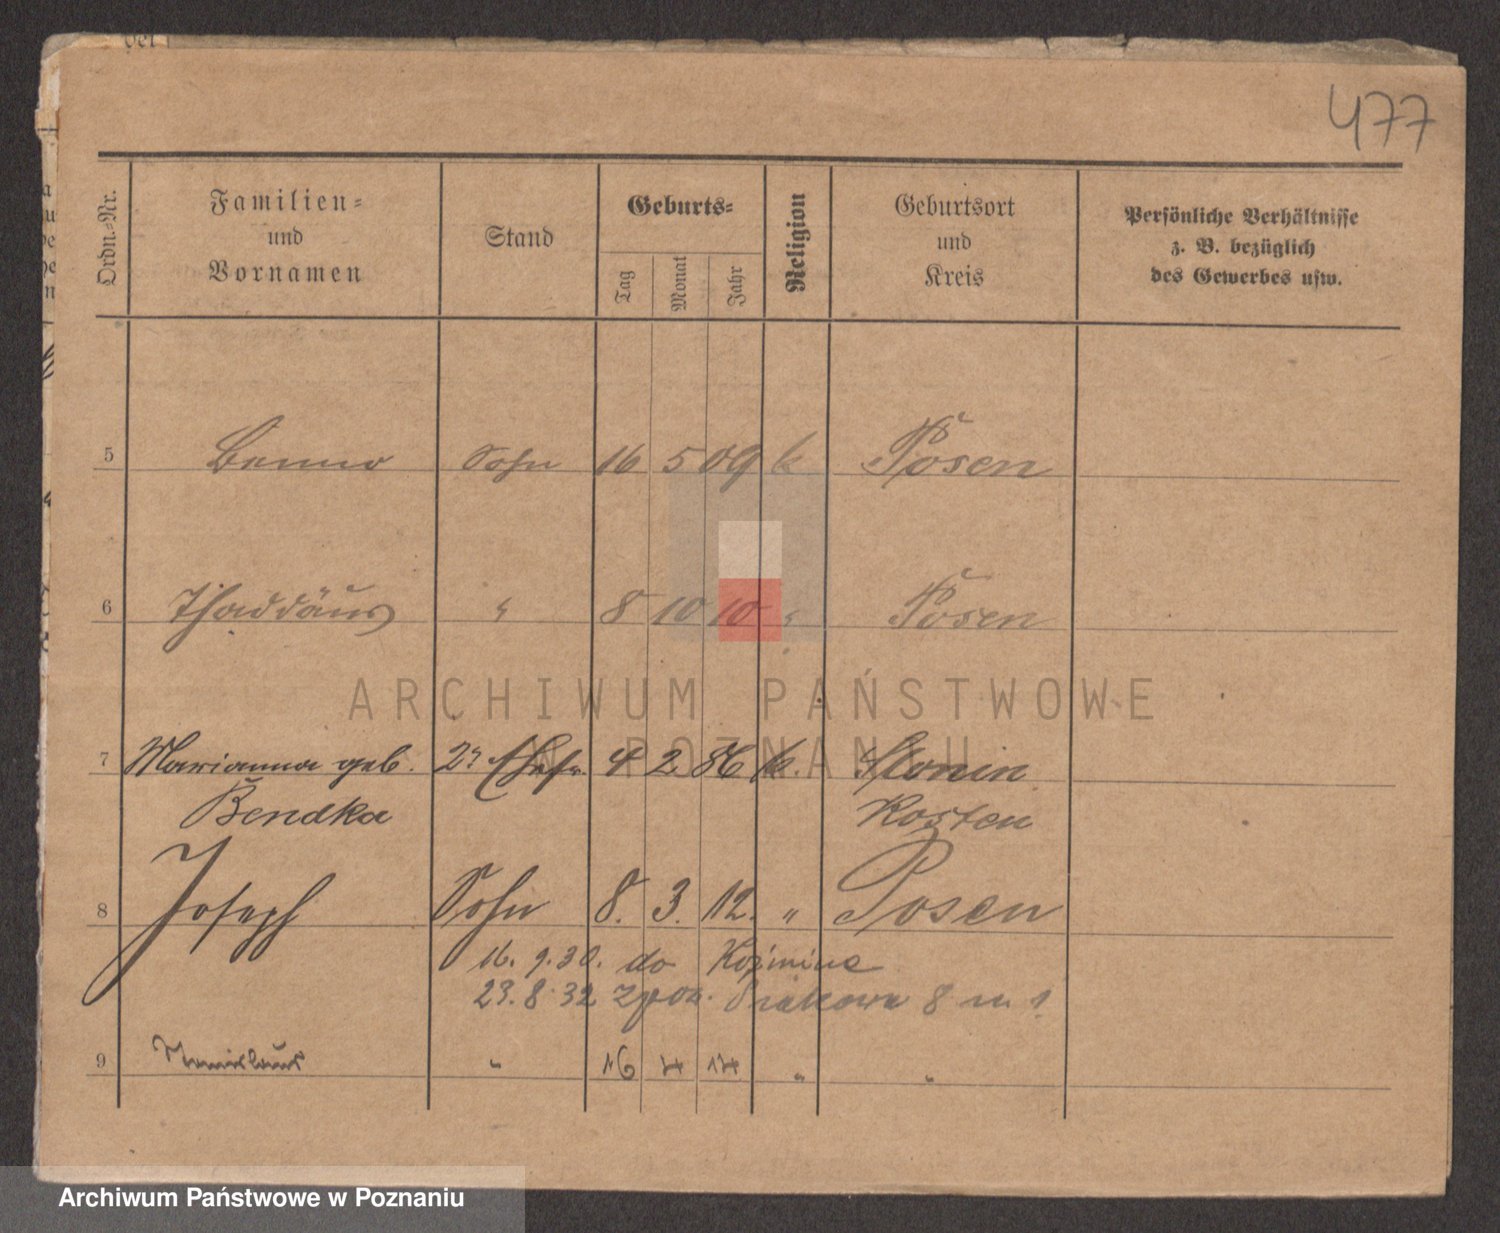 477
Ordn.-Nr.
Familien-
und
Vornamen
Stand
Geburts-
Tag
Monat
Jahr
Religion
Geburtsort
und
Kreis
Persönliche Verhältnisse
z. B. bezüglich
des Gewerbes usw.
5 Benno Sohn 16 5 09 k Posen
6 Thaddäus " 8 10 10 " Posen
ARCHIWUM PAŃSTWOWE
W POZNANIU
7 Marianna geb. 2. Ehefr. 4 2 86 k. Slonin
Bendka Kosten
8 Joseph Sohn 8. 3. 12. " Posen
16. 9. 30. do Koźmina
23. 8. 32 z pow. 8 m 1
9 " 16 4 14 " "
Archiwum Państwowe w Poznaniu